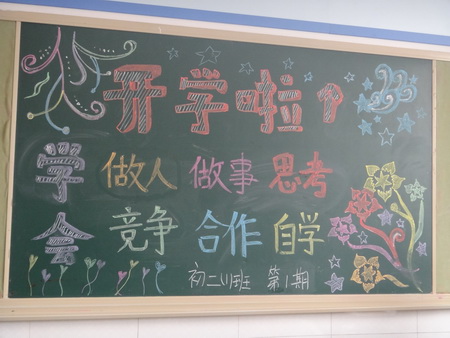 开学啦
学会
做人 做事 思考
竞争 合作 自学
初二(1)班 第1期